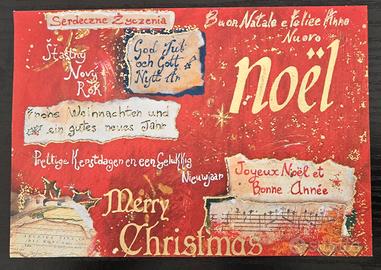 Serdeczne Życzenia
Buon Natale e Felice Anno
Nuovo
Stastny
Novy
Rok
God Jul
och Gott
Nytt År
noël
Frohe Weihnachten und
ein gutes neues Jahr
Prettige Kerstdagen en een Gelukkig
Nieuwjaar
Joyeux Noël et
Bonne Année
Merry
Christmas